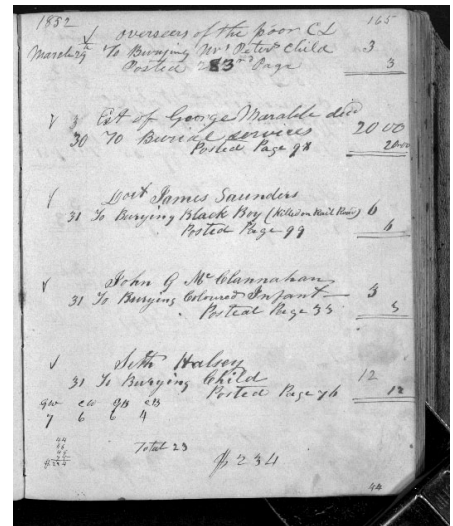 1852 165
overseers of the poor CL
March 29th To Burying Wm Peters Child 3
Posted 283rd Page 3
Est of George Marable decd
30 To Burial services 20 00
Posted Page 98 20 00
Doct James Saunders
31 To Burying Black Boy (Killed on Rail Road) 6
Posted Page 99 6
John G McClannahan
31 To Burying Coloured Infant 3
Posted Page 33 3
Seth Halsey
31 To Burying Child 12
Posted Page 76 12
GW CW GB CB
7 6 6 4
Total 23
$234
44